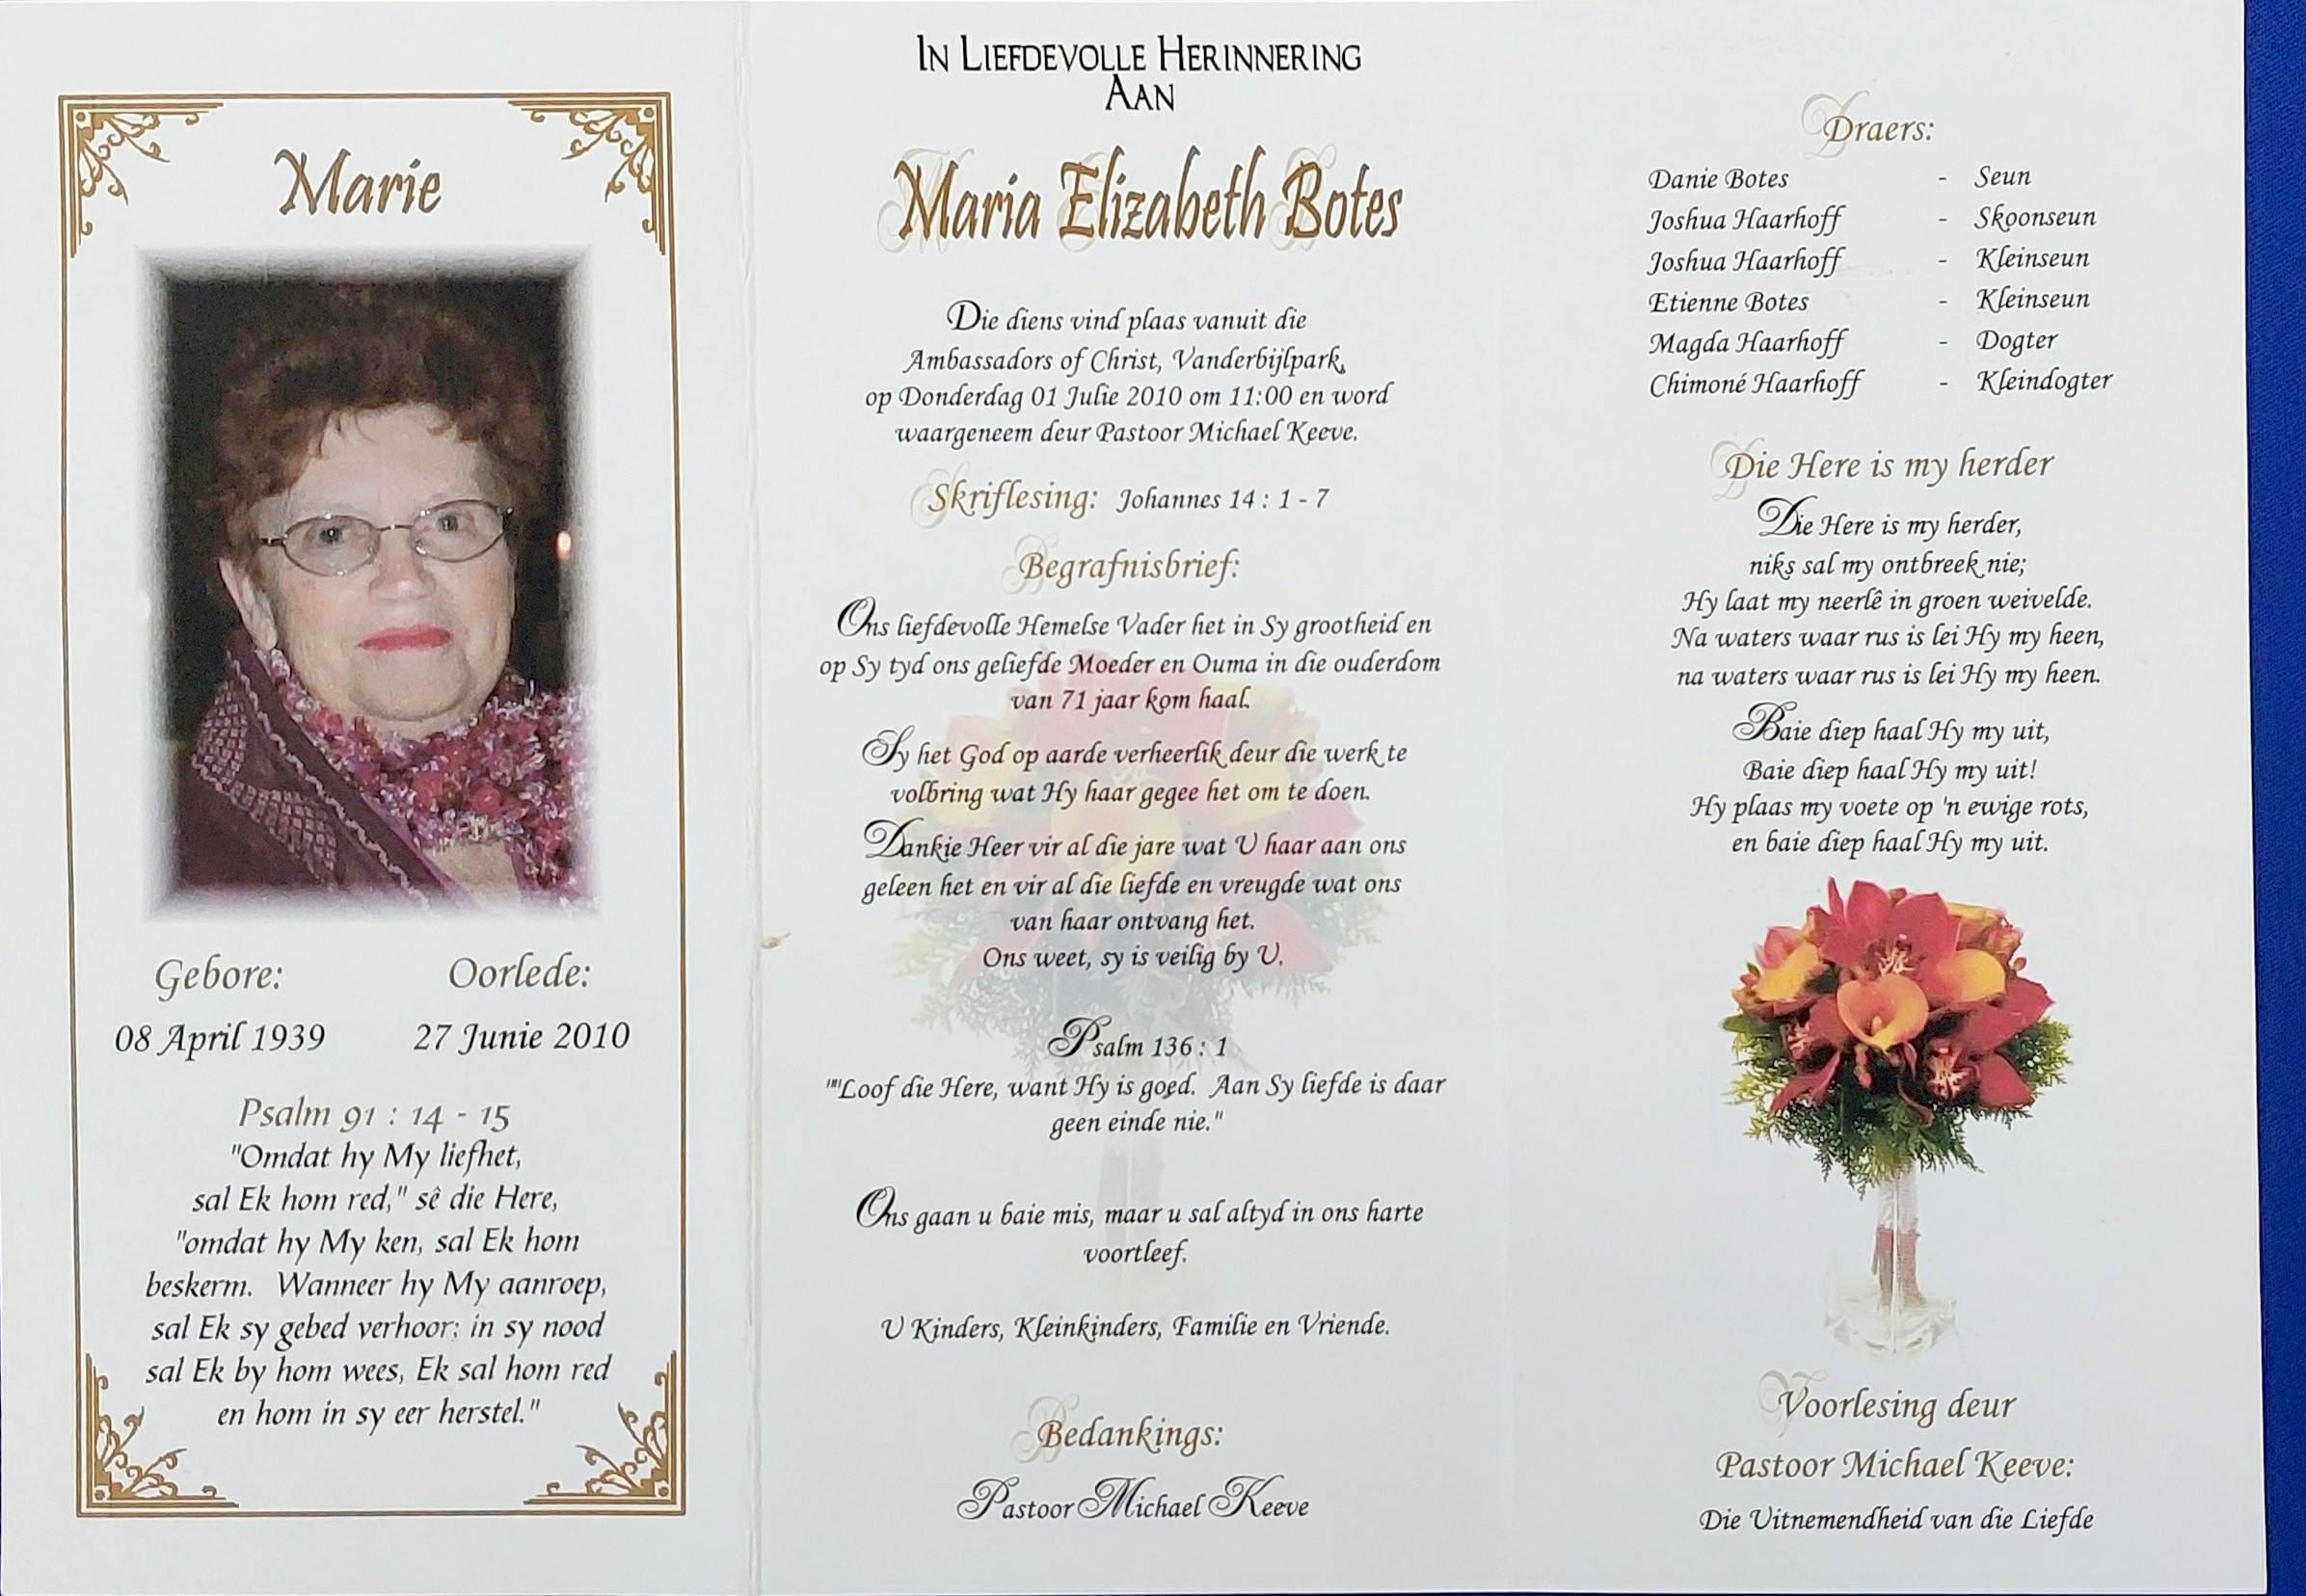 Marie
Gebore:
Oorlede:
08 April 1939
27 Junie 2010
Psalm 91 : 14 - 15
"Omdat hy My liefhet,
sal Ek hom red," sê die Here,
"omdat hy My ken, sal Ek hom
beskerm.  Wanneer hy My aanroep,
sal Ek sy gebed verhoor; in sy nood
sal Ek by hom wees, Ek sal hom red
en hom in sy eer herstel."
In Liefdevolle Herinnering
Aan
Maria Elizabeth Botes
Die diens vind plaas vanuit die
Ambassadors of Christ, Vanderbijlpark,
op Donderdag 01 Julie 2010 om 11:00 en word
waargeneem deur Pastoor Michael Keeve.
Skriflesing: Johannes 14 : 1 - 7
Begrafnisbrief:
Ons liefdevolle Hemelse Vader het in Sy grootheid en
op Sy tyd ons geliefde Moeder en Ouma in die ouderdom
van 71 jaar kom haal.
Sy het God op aarde verheerlik deur die werk te
volbring wat Hy haar gegee het om te doen.
Dankie Heer vir al die jare wat U haar aan ons
geleen het en vir al die liefde en vreugde wat ons
van haar ontvang het.
Ons weet, sy is veilig by U.
Psalm 136 : 1
""Loof die Here, want Hy is goed.  Aan Sy liefde is daar
geen einde nie."
Ons gaan u baie mis, maar u sal altyd in ons harte
voortleef.
U Kinders, Kleinkinders, Familie en Vriende.
Bedankings:
Pastoor Michael Keeve
Draers:
Danie Botes - Seun
Joshua Haarhoff - Skoonseun
Joshua Haarhoff - Kleinseun
Etienne Botes - Kleinseun
Magda Haarhoff - Dogter
Chimoné Haarhoff - Kleindogter
Die Here is my herder
Die Here is my herder,
niks sal my ontbreek nie;
Hy laat my neerlê in groen weivelde.
Na waters waar rus is lei Hy my heen,
na waters waar rus is lei Hy my heen.
Baie diep haal Hy my uit,
Baie diep haal Hy my uit!
Hy plaas my voete op 'n ewige rots,
en baie diep haal Hy my uit.
Voorlesing deur
Pastoor Michael Keeve:
Die Uitnemendheid van die Liefde